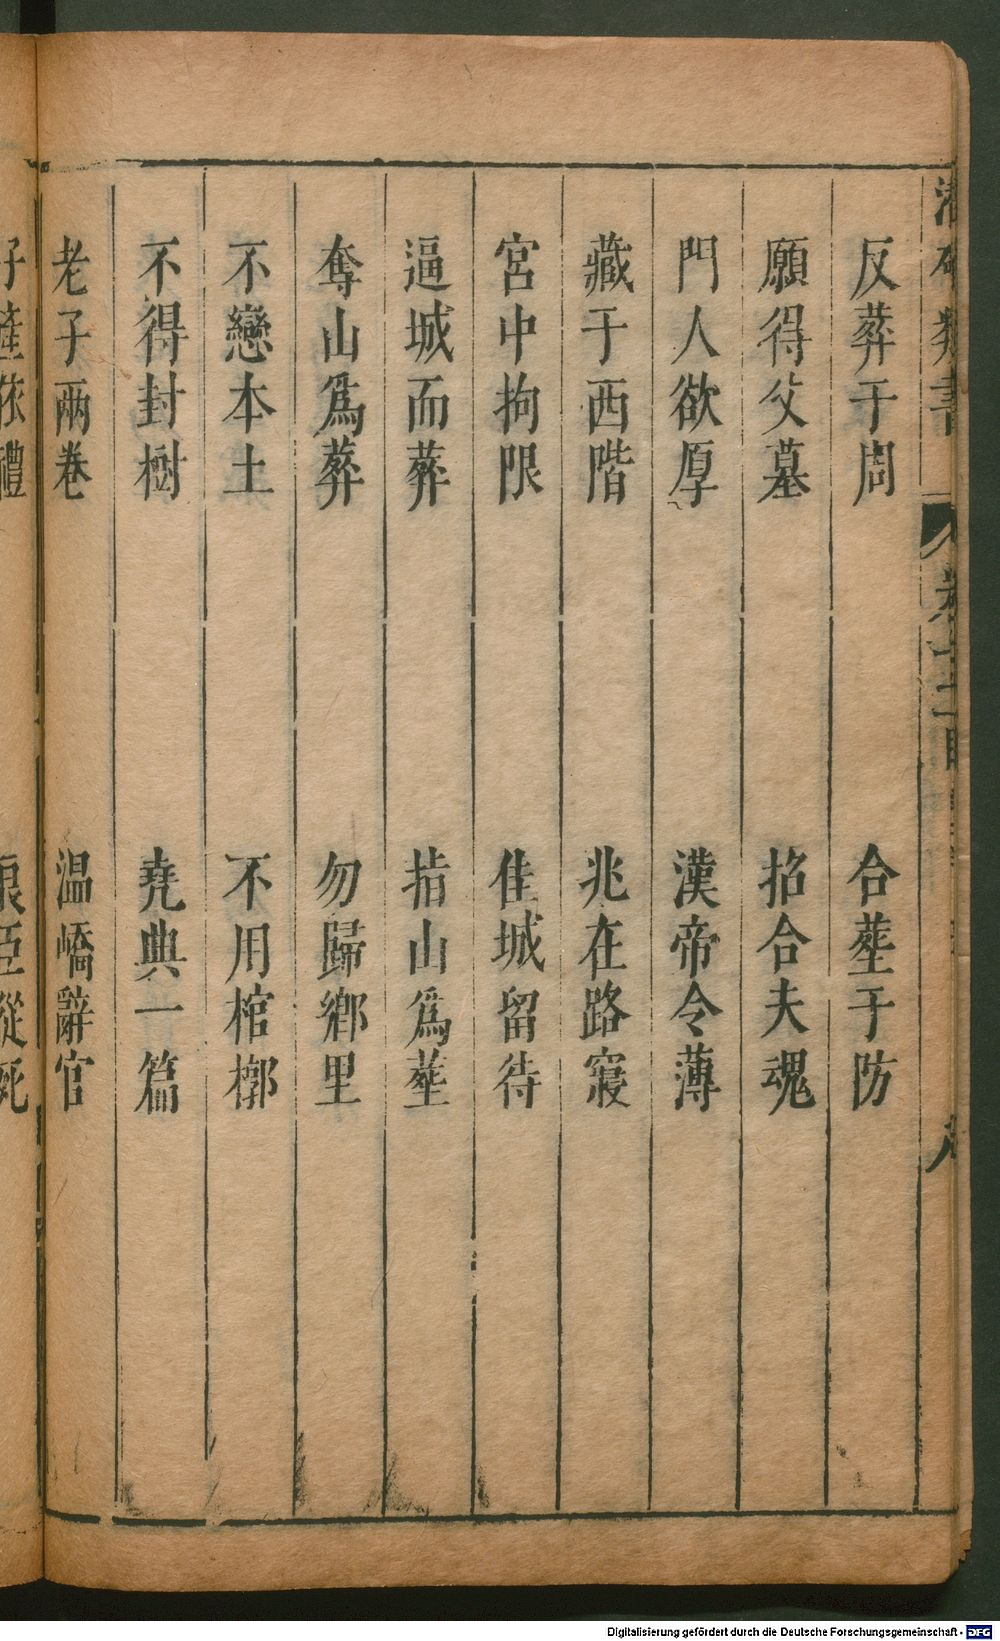 反葬于周　合塟于防
願得父墓　招合夫魂
門人欲厚　漢帝令薄
藏于西階　兆在路寢
宮中拘限　佳城留待
逼城而葬　指山爲塟
奪山爲葬　勿歸鄉里
不戀本土　不用棺槨
不得封樹　堯典一篇
老子兩卷　温嶠辭官
Digitalisierung gefördert durch die Deutsche Forschungsgemeinschaft - DFG